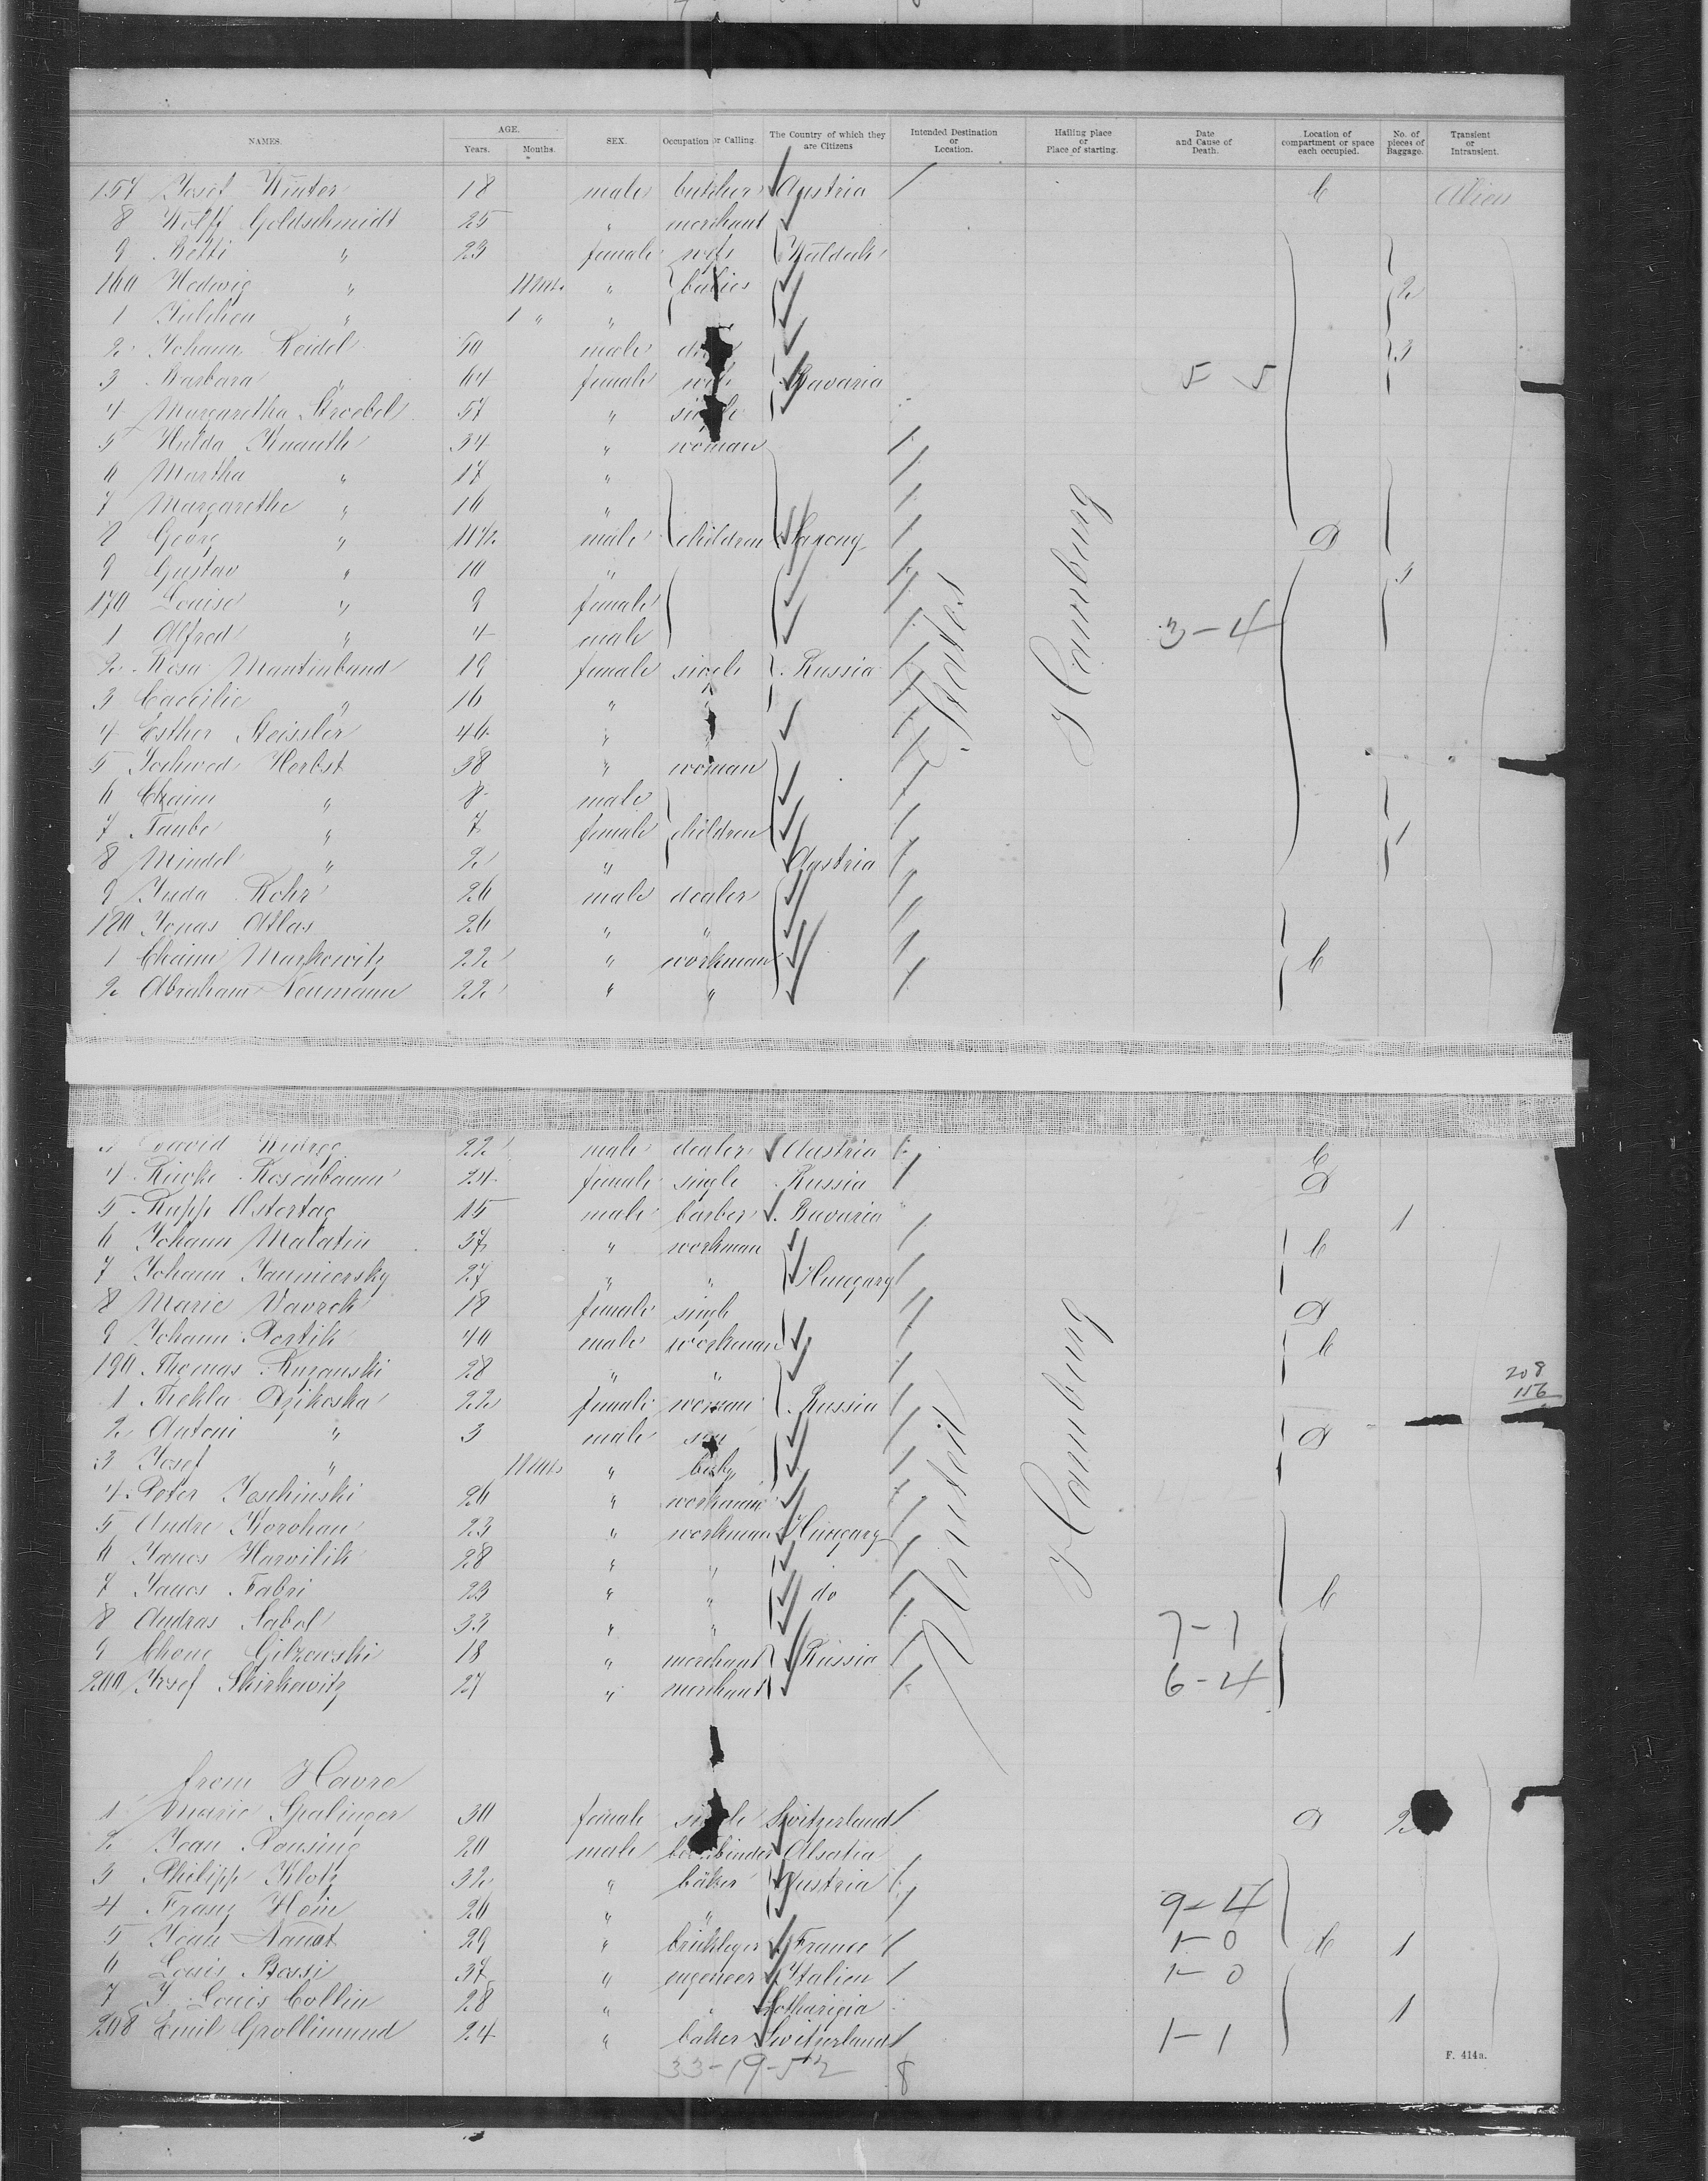 NAMES. AGE. Years. Months. SEX. Occupation or Calling. The Country of which they are Citizens Intended Destination or Location. Hailing place or Place of starting. Date and Cause of Death. Location of compartment or space each occupied. No. of pieces of Baggage. Transient or Intransient.
157 Josef Winter 18 male butcher Austria C
8 Wolff Goldschmidt 25 " merchant
9 Betti " 23 female wife Waldeck
160 Hedwig " 11 mts. " babies 2
1 Julchen " 1 " "
2 Johann Reidel male 3
3 Barbara " 64 female wife Bavaria 5 5
4 Margaretha Stroebel 57 " single
5 Hulda Knauth 34 " woman
6 Martha " 17 "
7 Margarethe " 16 "
8 Georg " 11½ male children Saxony D
9 Gustav " 10 "
170 Louise " 9 female
1 Alfred " 4 male 3-4
2 Rosa Mantinband 19 female single Russia
3 Caecilie " 16 " "
4 Esther Steissler 46 " "
5 Jochwed Herbst 38 " woman
6 Chaim " 8 male
7 Taube " 7 female children 1
8 Mindel " 2 " Austria
9 Juda Rohr 26 male dealer
180 Jonas Atlas 26 " "
1 Chaim Markowitz 22 " workman C
2 Abraham Neumann 22 " "
States
Hamburg
David 22 male dealer Austria C
4 Rosenbaum 24 female single Russia D
5 Rupp Ostertag 15 male barber Bavaria 1
6 Johann Malatin 37 " workman C
7 Johann Janniersky 27 " " Hungary
8 Marie Vavrek 18 female single D
9 Johann Portik 40 male workman C
190 Thomas Ruzanski 28 " "
208
156
1 Thekla Dzikoska 22 female woman Russia
2 Antoni " 3 male son D
3 Josef " 11 mts " baby
4 Peter Joschinski 26 " workman
5 Andre Korohan 23 " workman Hungary
6 Janos Harvilik 28 " "
7 Janos Fabri 23 " " do C
8 Andras Sabol 33 " " 7-1
9 Chone Gilzowski 18 " merchant Russia
200 Josef Skirkowitz 27 " merchant 6-4
United
Hamburg
from Havre
1 Marie Spalinger 30 female single Switzerland D 2
2 Jean Ponsing 20 male bookbinder Alsatia
3 Philipp Klotz 32 " baker Austria
4 Franz Hein 20 " " 9-4
5 Jean 29 " bricklayer France 1-0 C 1
6 Louis Bossi 37 " engeneer Italien 1-0
7 J. Louis Collin 28 " " Lotharigia 1
208 Emil Grollimund 24 " baker Switzerland 1-1
33-19-52 8
F. 414a.